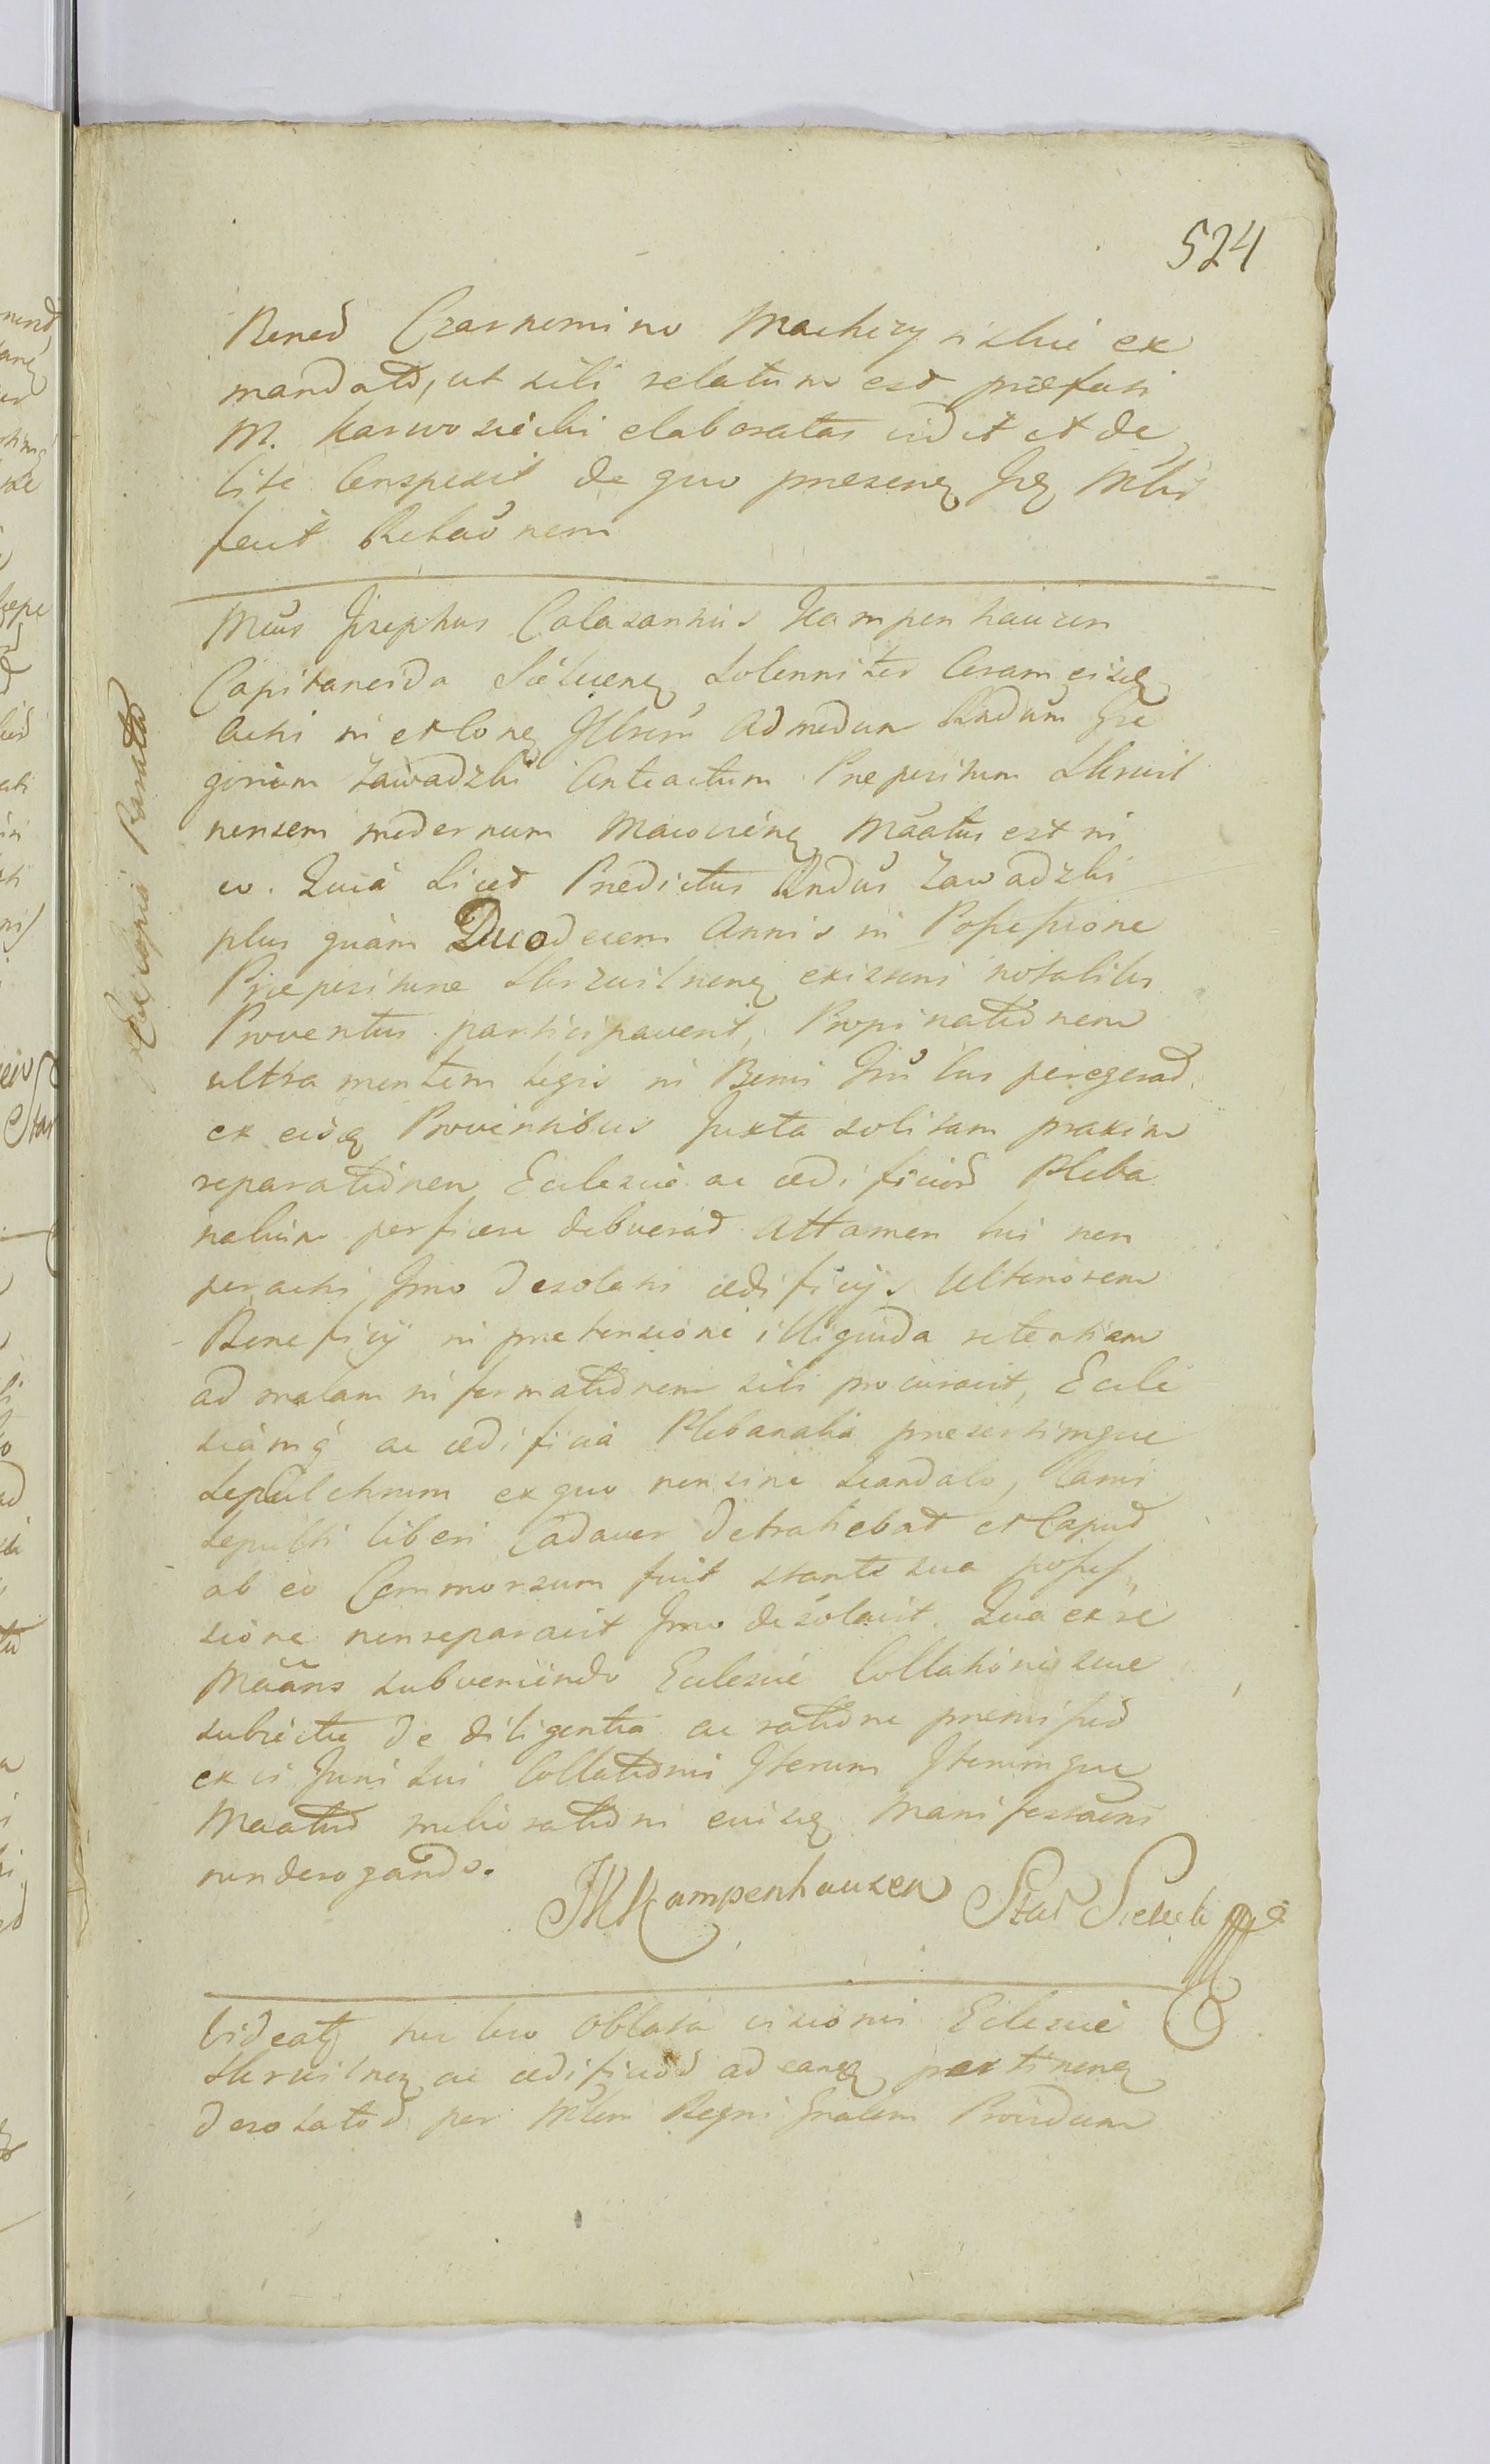 524
Bened Czarnomino Machczynskie ex
mandato, ut sibi relatum est præfati
M. Karwosiecki elaboratas vidit et de
bite Conspexit de quo præsens
fecit Relaõnem
Josephus Calasantius Kampenhauzen
Capitaneida Solenniter Coram eisdem
Actis in et Cone Admodum Rndum Gre
gorium Zawadzki Anteactum Præpositum Skrwil
nensem modernum est in
eo. Quia Licet Prædictus Rndus Zawadzki
plus quàm Duodecem Annis in Possessione
Præpositure existens notabiles
Proventus participaverit, Propinationem
ultra mentem Legis in Bonis peregerat
ex eisdem Proventibus Juxta solitam praxim
reparationem Eclesiæ ac ædificiorum Pleba
nalium perficere debuerat Attamen his non
peractis Imo desolatis ædificijs Ulteriorem
Beneficij in prætensione illiquida retentiam
ad malam informationem sibi procuravit, Ecle
siamq ac ædificia Plebanalia præsertimque
Sepulchrum ex quo non sine scandalo, Canis
sepulti liberi Cadaver detrahebat et Caput
ab eo Commorsum fuit stante sua posses
sione non reparavit Imo desolavit. Qua ex re
subveniendo Eclesiæ Collationis suæ
subiectæ de diligentia ac ratione præmissor
ex vi Juris sui Collationis Iterum Iterumque
melioratione eiusdem Manifestaõnis
non derogando.
JKKampenhauzen Star Sielucki
Videatur hic loco Oblata visionis Eclesiæ
ac ædificior ad eandem pertinen
desolator per Regni Gnalem Providum
Ex copia Parata